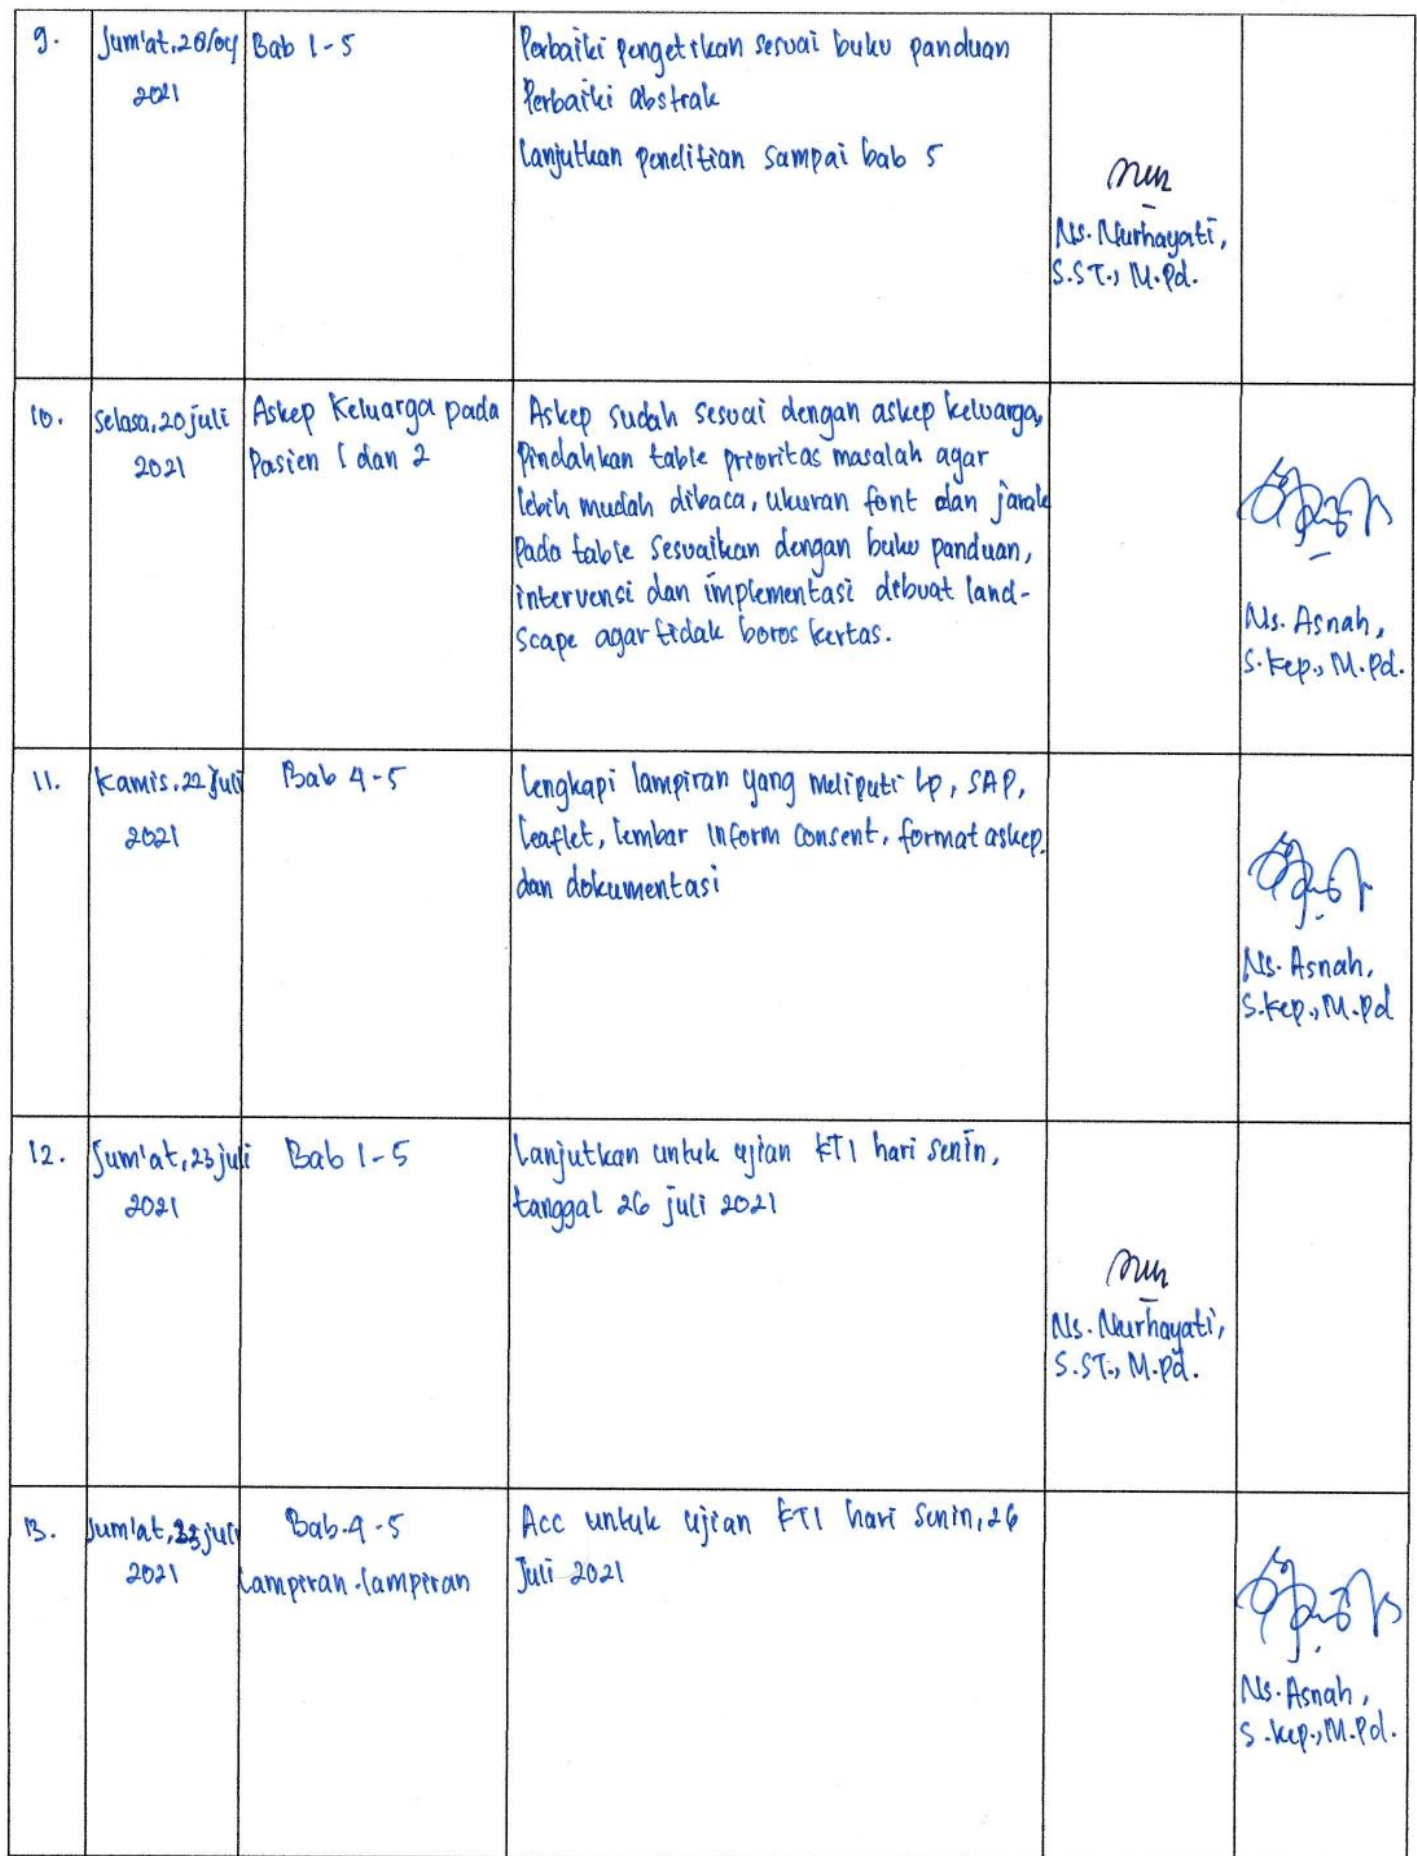 9.
Jum'at, 28/04
2021
Bab 1-5
Perbaiki pengetikan sesuai buku panduan
Perbaiki abstrak
Lanjutkan penelitian sampai bab 5
Ns. Nurhayati,
S.ST., M.Pd.
10.
Selasa, 20 juli
2021
Askep Keluarga pada
Pasien 1 dan 2
Askep sudah sesuai dengan askep keluarga,
Pindahkan table prioritas masalah agar
lebih mudah dibaca, ukuran font dan jarak
pada table sesuaikan dengan buku panduan,
intervensi dan implementasi dibuat land-
scape agar tidak boros kertas.
Ns. Asnah,
S.Kep., M.Pd.
11.
Kamis, 22 Juli
2021
Bab 4-5
Lengkapi lampiran yang meliputi Lp, SAP,
leaflet, lembar inform consent, format askep.
dan dokumentasi
Ns. Asnah,
S.Kep., M.Pd
12.
Jum'at, 23 juli
2021
Bab 1-5
Lanjutkan untuk ujian KTI hari senin,
tanggal 26 juli 2021
Ns. Nurhayati,
S.ST., M.Pd.
13.
Jum'at, 23 juli
2021
Bab.4-5
Lampiran-lampiran
Acc untuk ujian KTI hari Senin, 26
Juli 2021
Ns. Asnah,
S.Kep., M.Pd.